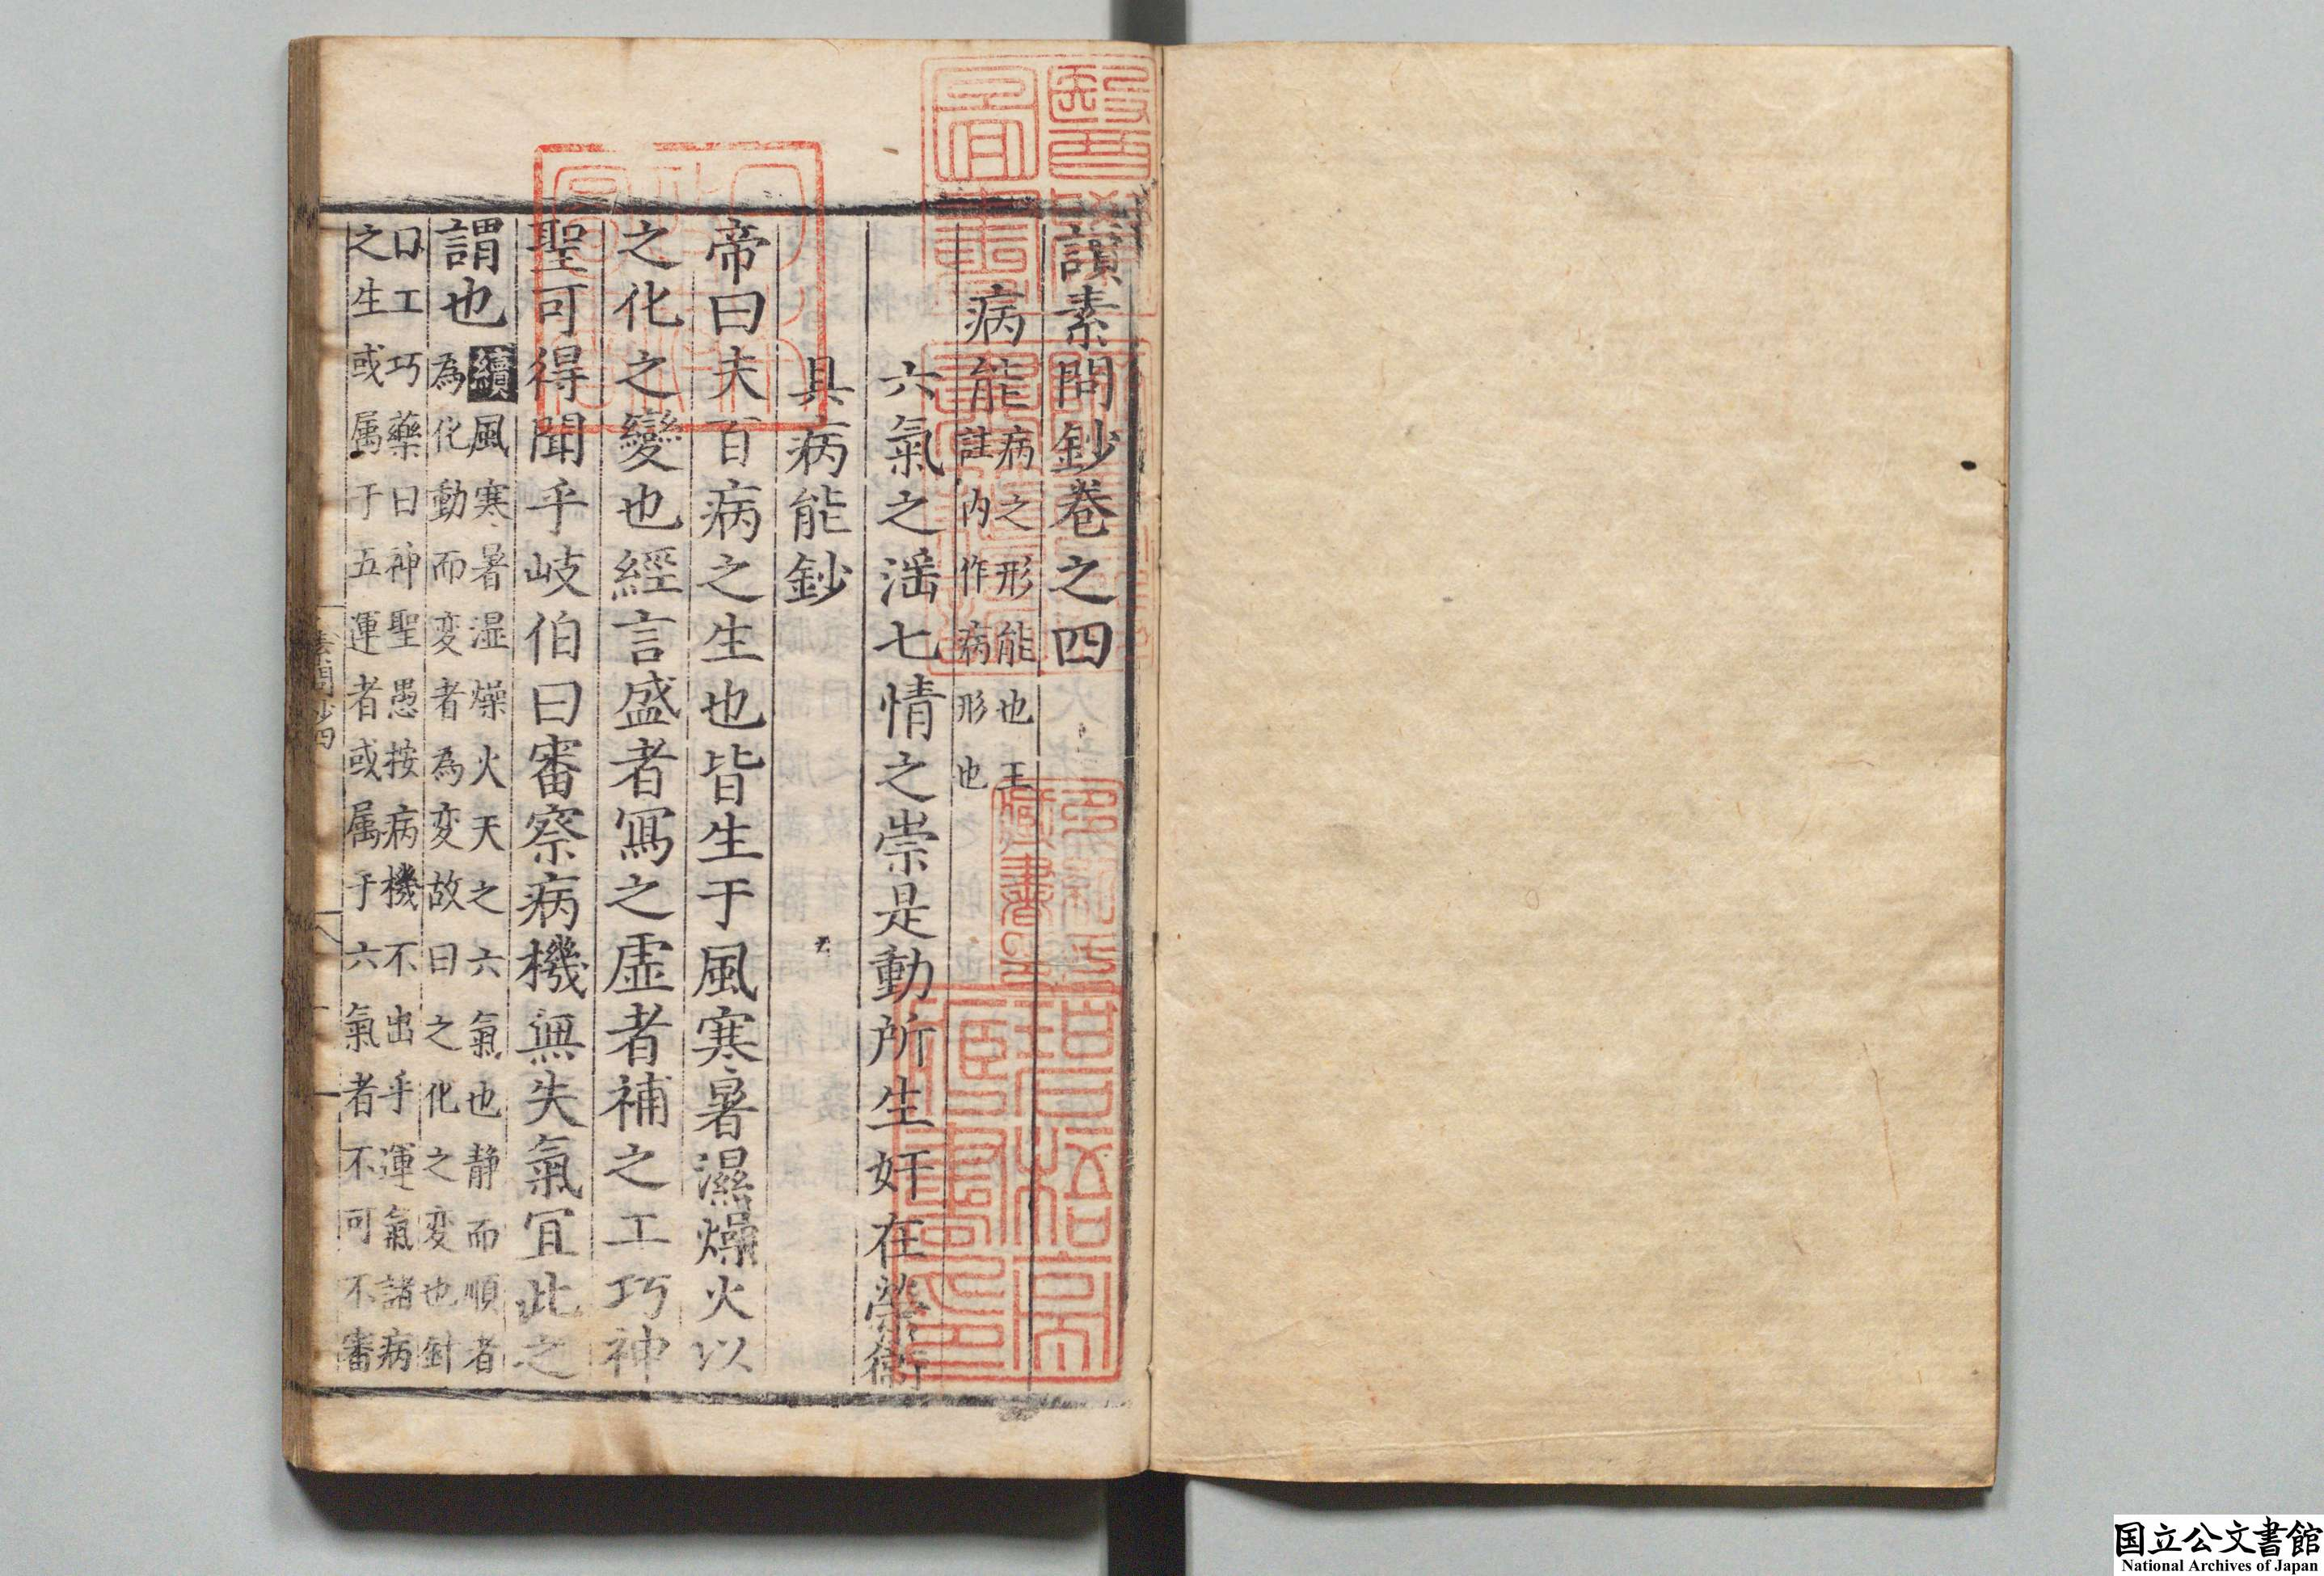 讀素問鈔卷之四
病能 病之形能也王
註內作病形也
六氣之滛七情之祟是動所生奸在榮衛
具病能鈔
帝曰夫百病之生也皆生于風寒暑濕燥火以
之化之變也經言盛者寫之虛者補之工巧神
聖可得聞乎岐伯曰審察病機無失氣宜此之
謂也 續 風寒暑湿燥火天之六氣也静而順者
為化動而変者為変故曰之化之変也針
曰工巧藥曰神聖愚按病機不出乎運氣諸病
之生或属于五運者或属于六氣者不可不審
素問鈔四
醫學圖書
多紀氏藏書印
國立公文書館
National Archives of Japan